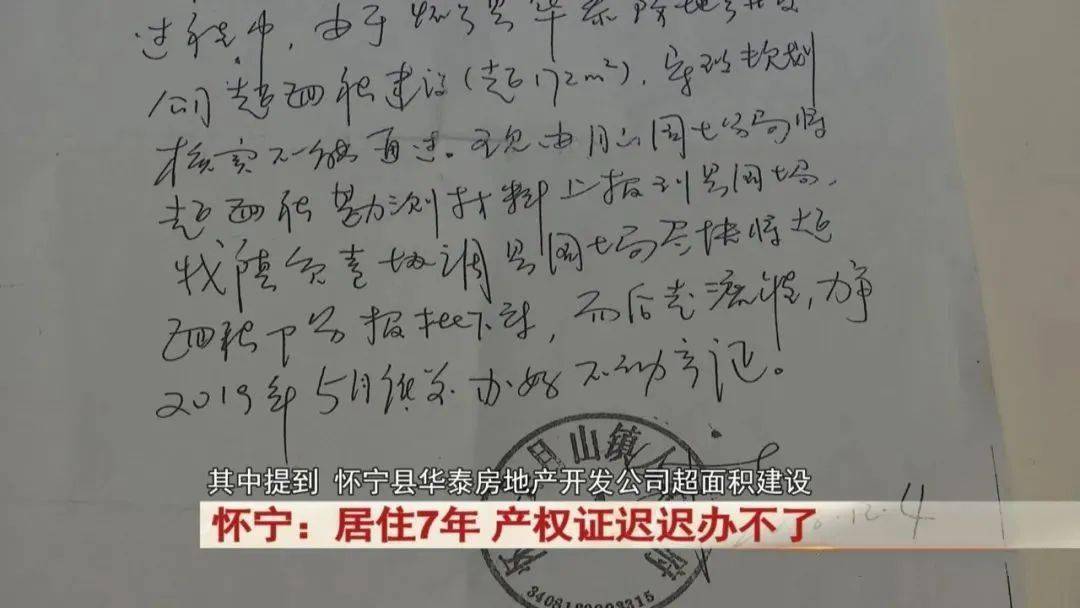 过程中，由于怀宁县华泰房地产开发
公司超面积建设(超172m²)，导致规划
核实不能通过。现由月山国土分局将
超面积勘测材料上报到县国土局，
我镇负责协调县国土局尽快将超
面积部分报批下来，而后走流程，力争
2019年5月份前办好不动产证。
月山镇人
12.4
其中提到 怀宁县华泰房地产开发公司超面积建设
怀宁：居住7年 产权证迟迟办不了